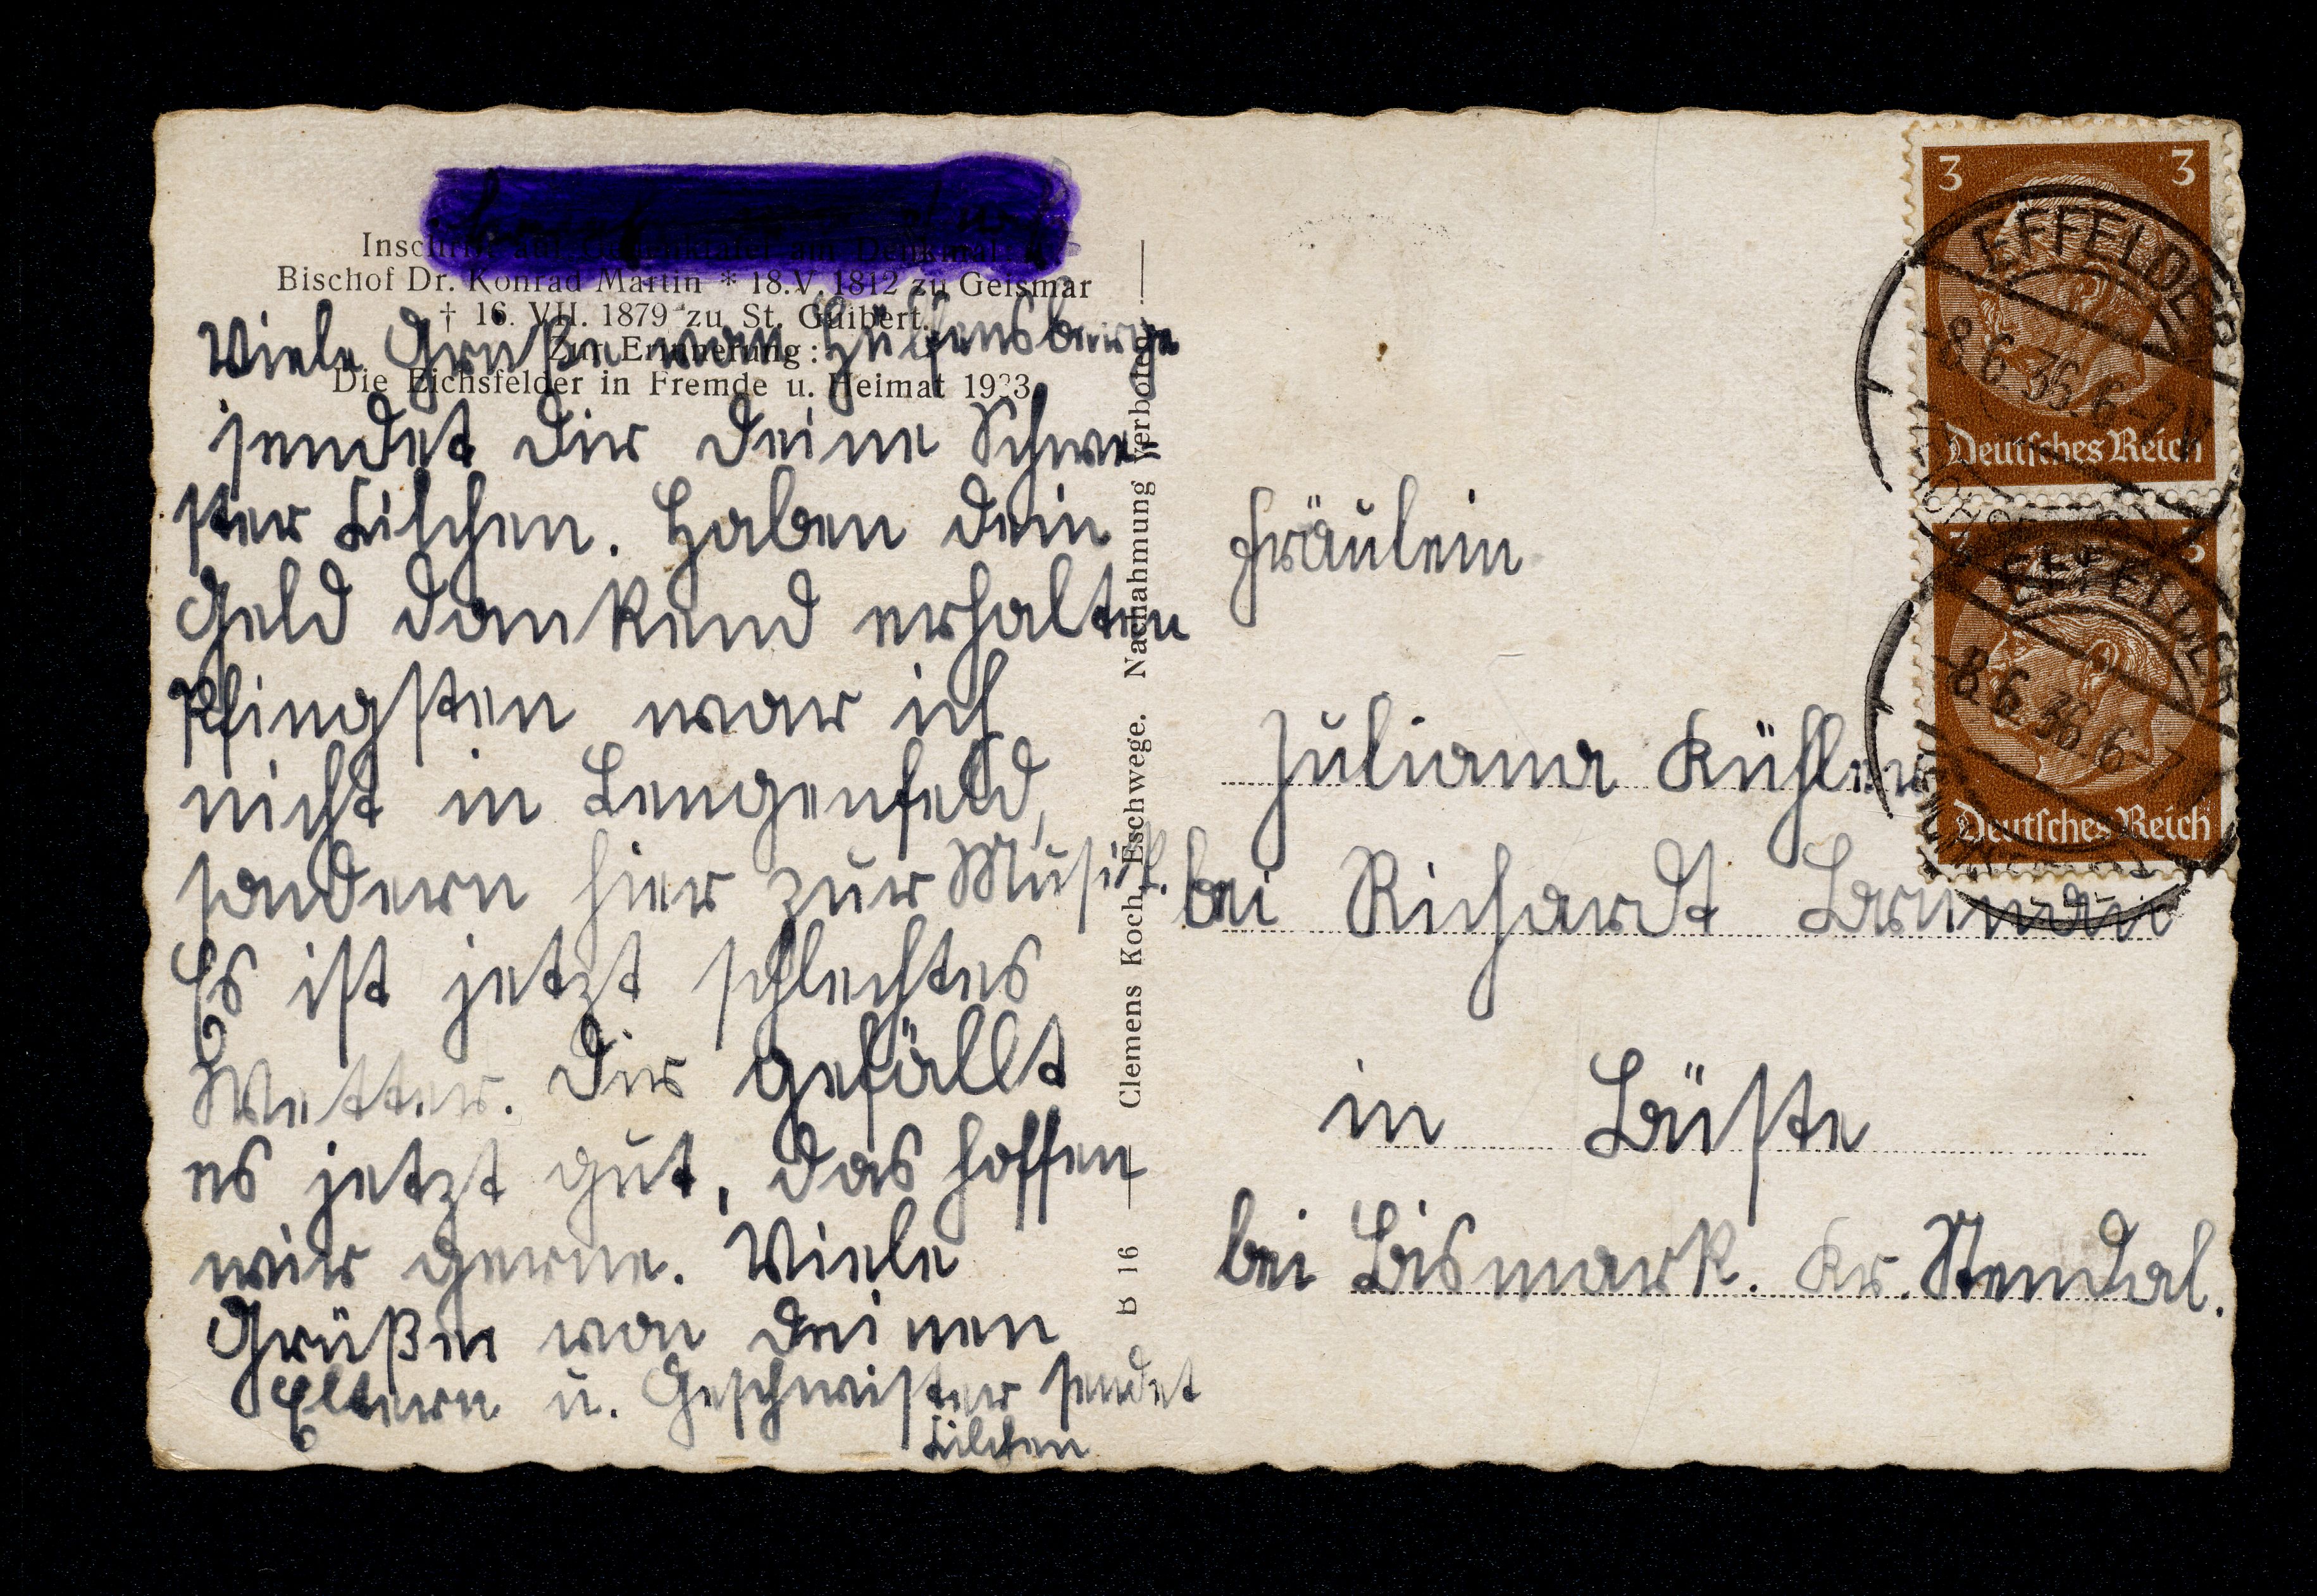 Inschrift auf Gedenktafel am Denkmal
Bischof Dr. Konrad Martin * 18. V. 1812 zu Geismar
† 16. VII. 1879 zu St. Guibert.
Zur Erinnerung:
Die Eichsfelder in Fremde u. Heimat 1933
Viele Grüße vom Hülfensberge
sendet dir deine Schwe
ster Lilchen. Haben dein
Geld dankend erhalten
Pfingsten war ich
nicht in Lengenfeld,
sondern hier zur Musik.
Es ist jetzt schlechtes
Wetter. Dir gefällt
es jetzt gut, das hoffen
wir gerne. Viele
Grüßen von deinen
Eltern u. Geschwister sendet
Lilchen
B 16 Clemens Koch, Eschwege. Nachahmung verboten.
3 3
Deutsches Reich
EFFELDER
-8.6.36. 6-7
3
Deutsches Reich
EFFELDER
-8.6.36. 6-7
Fräulein
Juliana Kühler
bei Richardt
in Büste
bei Bismark. Kr. Stendal.